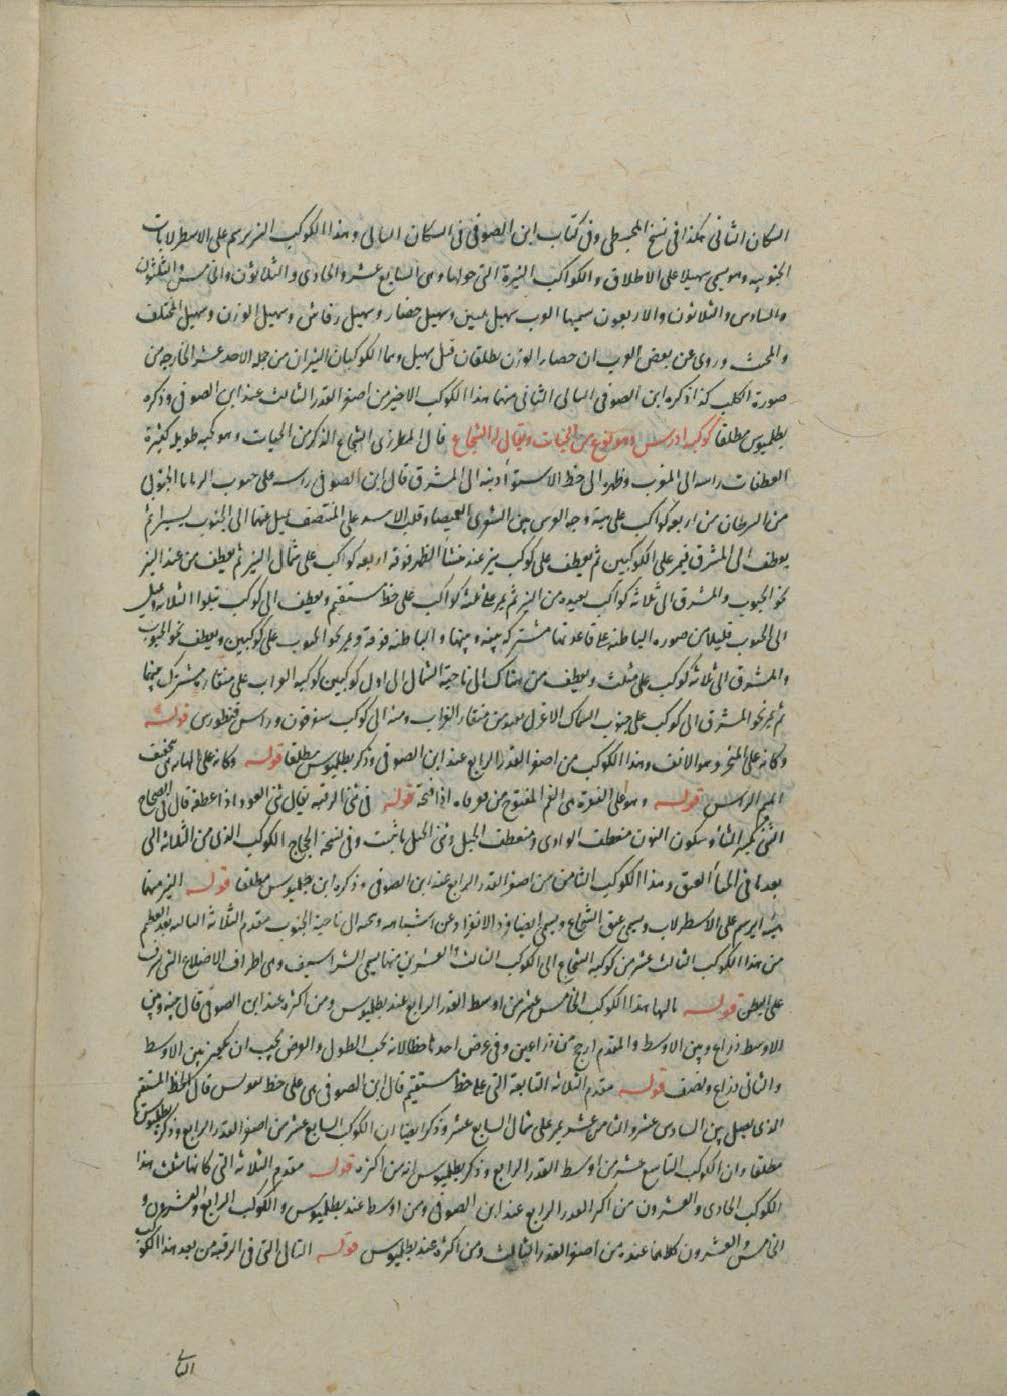 السكان الثانى هكذا فى نسخ المجسطى وفى كتاب ابن الصوفى فى السكان التالى وهذا الكوكب النير يرسم على الاسطرلابات
الجنوبيه وهو يسمى سهيلا على الاطلاق والكواكب النيرة التى حولها وهى السابع عشر والحادى والثلاثون والخامس والثلثون
والسادس والثلاثون والاربعون سميها العرب سهيل بلقين وسهيل حضار وسهيل رقاش وسهيل الوزن وسهيل المحلف
والمحنث وروى عن بعض العرب ان حضار والوزن يطلقان قبل سهيل وهما الكوكبان النيران من جملة الاحد عشر الخارجه من
صورة الكلب كذا ذكره ابن الصوفى التالى الثانى منهما هذا الكوكب الاخير من اصغر القدر الثالث عند ابن الصوفى وذكره
بطلميوس مطلقا كوكبه ادرس وهو نوع من الحيات ويقال له الشجاع قال المطرزى الشجاع الذكر من الحيات وهو كبه طويله كثيرة
العطفات راسه الى المغرب وظهره الى خط الاستوا وذنبه الى المشرق قال ابن الصوفى راسه على جنوب الزبانا الجنوبى
من السرطان من اربعة كواكب على هيئة وجه الفرس بين الشعرى الغميصا وقلب الاسد على المنتصف يميل عنهما الى الجنوب يسيرا ثم
يعطف الى المشرق فيمر على الكوكبين ثم يعطف على كوكب نير عند منشأ الظهر فوقه اربعه كواكب على شمال النير ثم يعطف من عند النير
نحو الجنوب والمشرق الى ثلاثه كواكب بعيده من النير ثم يمر على ثلثة كواكب على خط مستقيم ويعطف الى كوكب تتلوا الثلاثه ويميل
الى الجنوب قليلا من صوره الباطيه على قاعدتها مشتركه بينه وبينها والباطيه فوقه ويمر نحو الجنوب على كوكبين ويعطف نحو الجنوب
والمشرق الى ثلاثه كوكب على مثلث ويعطف من هناك الى ناحية الشمال الى اول كوكبين كوكبه الغراب على منقاره مشترك بينهما
ثم يمر نحو المشرق الى كوكب على جنوب السماك الاعزل بعيد من منقار الغراب ومنه الى كوكب سنوخون وراس قنطورس قوله
وكانه على المنخر وهو الانف وهذا الكوكب من اصغر القدر الرابع عند ابن الصوفى وذكر بطلميوس مطلقا قوله وكانه على الهامه هى تخفيف
الميم الراس قوله وهو على الفغرة هى الفم المفتوح من فغر فاه اذا فتحه قوله فى ثنى الرقبه يقال ثنى العود اذا عطفه قال فى الصحاح
الثنى بكسر الثا وسكون النون منعطف الوادى ومنعطف الجبل وثنى الحبل ما ثنيت وفى نسخة الحجاج الكوكب الذى من الثلاثه التى
بعدها فى المبدأ العنق وهذا الكوكب الثامن من اصغر القدر الرابع عند ابن الصوفى وذكره ابن بطلميوس مطلقا قوله النير منهما
هذا يرسم على الاسطرلاب ويسمى عنق الشجاع ويسمى ايضا فرد الانفراده عن اشباهه وتنحيه الى ناحية الجنوب مقدم الثلاثة التاليه بعد العظم
من هذا الكوكب الثالث عشر من كوكبه الشجاع الى الكوكب الثالث والعشرين منها يسمى الشراسيف وهى اطراف الاضلاع التى تشرف
على البطن قوله تاليها هذا الكوكب الخامس عشر من اوسط القدر الرابع عند بطلميوس ومن اكثره عند ابن الصوفى قال بينه وبين
الاوسط ذراع وبين الاوسط والمقدم ارجح من ذراعين وفى عرض احدها خطا لانه بحسب الطول والعرض يجب ان يكون بين الاوسط
والثانى ذراع ونصف قوله مقدم الثلاثه التابعة التى على خط مستقيم قال ابن الصوفى هى على خط مقوس قال الخط المستقيم
الذى يصل بين السادس عشر والثامن عشر يمر على شمال السابع عشر وذكر ايضا ان الكوكب السابع عشر من اصغر القدر الرابع وذكره بطلميوس
مطلقا وان الكوكب التاسع عشر من اوسط القدر الرابع وذكر بطلميوس انه من اكثره قوله مقدم الثلاثه التى كانها مثلث هذا
الكوكب الحادى والعشرون من اكبر القدر الرابع عند ابن الصوفى ومن اوسط عند بطلميوس والكوكب الرابع والعشرون و
الخامس والعشرون كلاهما عنده من اصغر القدر الثالث ومن اكثره عند بطلميوس قوله التالى التى فى الرقبه من بعد هذا الكوكب
التالى